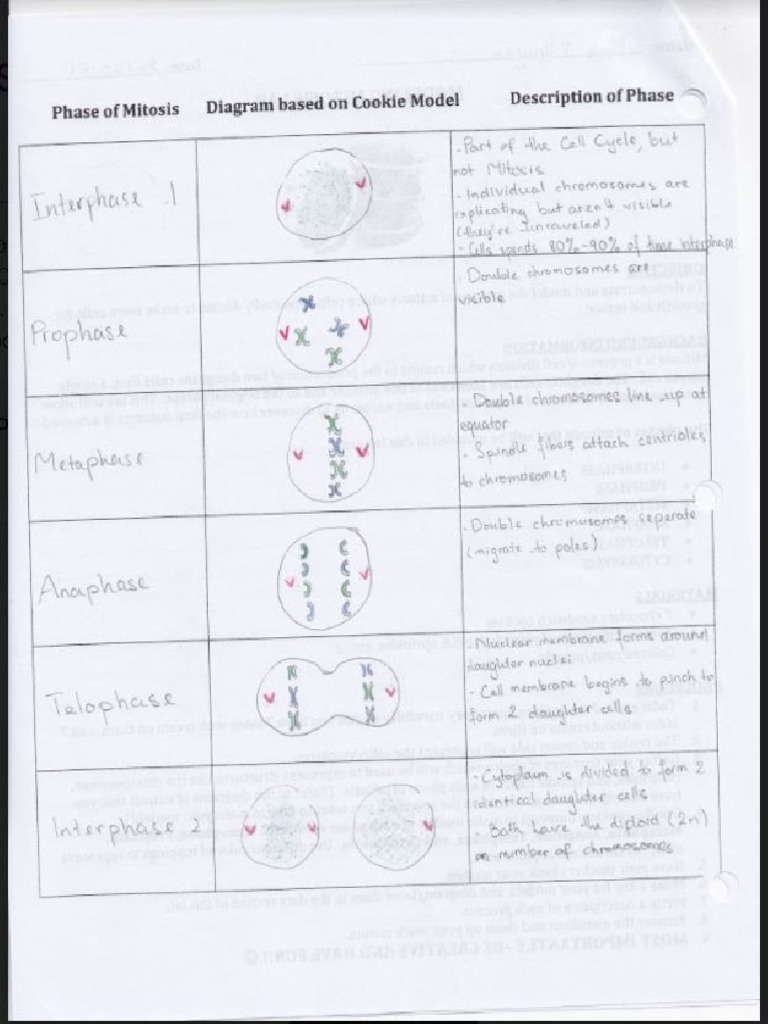 Phase of Mitosis Diagram based on Cookie Model Description of Phase
Interphase 1
- Part of the Cell Cycle, but
not Mitosis
- Individual chromosomes are
replicating but aren't visible
(they're unraveled)
- Cells spends 80%-90% of time interphase
Prophase
- Double chromosomes are
visible
Metaphase
- Double chromosomes line up at
equator
- Spindle fibers attach centrioles
to chromosomes
Anaphase
- Double chromosomes seperate
(migrate to poles)
Telophase
- Nuclear membrane forms around
daughter nuclei
- Cell membrane begins to pinch to
form 2 daughter cells
Interphase 2
- Cytoplasm is divided to form 2
identical daughter cells
- Both have the diploid (2n)
number of chromosomes